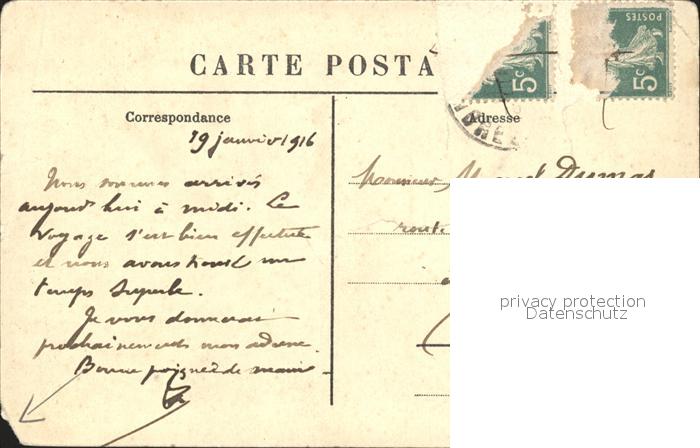 CARTE POSTA
POSTES
5c
5c
Correspondance
Adresse
19 janvier 1916
Monsieur Dumas
Nous sommes arrivés
aujourd'hui à midi. Le
route
voyage s'est bien effectué
et nous avons trouvé un
temps superbe.
privacy protection
Datenschutz
Je vous donnerai
prochainement mon adresse.
Bonne poignée de main